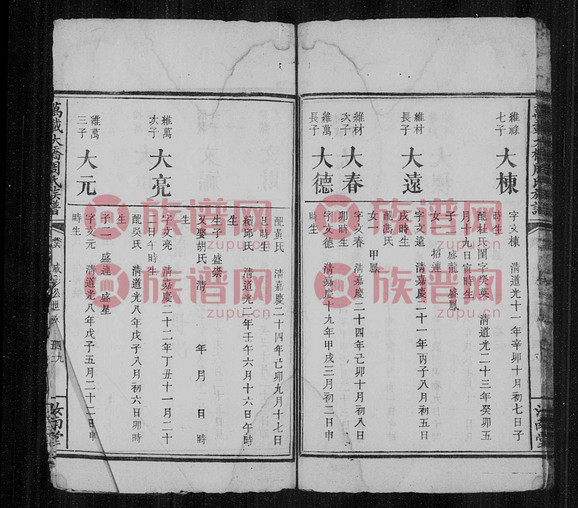 維禄
七子
大棟
字文棟 清道光十一年辛卯十月初七日子
時生
配杜氏閨字癸英 清道光二十三年癸卯五
月十九日寅時生
子二 盛龍 盛鳳
女 招蓮
維材
長子
大遠
字文遠 清嘉慶二十一年丙子八月初五日
戌時生
配馮氏
女一 甲鳳
維材
次子
大春
字文春 清嘉慶二十四年己卯十月初八日
卯時生
維萬
長子
大德
字文德 清嘉慶十九年甲戌三月初二日申
時生
配黃氏 清嘉慶二十四年己卯九月十七日
丑時生
繼邱氏 清道光二年壬午六月十六日午時
生
生子 盛崇
又娶胡氏 清 年 月 日 時
生
維萬
次子
大亮
字文亮 清嘉慶二十二年丁丑十一月二十
日午時生
配吳氏 清道光八年戊子八月初六日卯時
生
子二 盛達 盛星
維萬
三子
大元
字文元 清道光八年戊子五月二十二日申
時生
萬載大橋周氏族譜
汝南堂
族谱网
zupu.cn
族谱网
zupu.cn
族谱网
zupu.cn
族谱网
zupu.cn